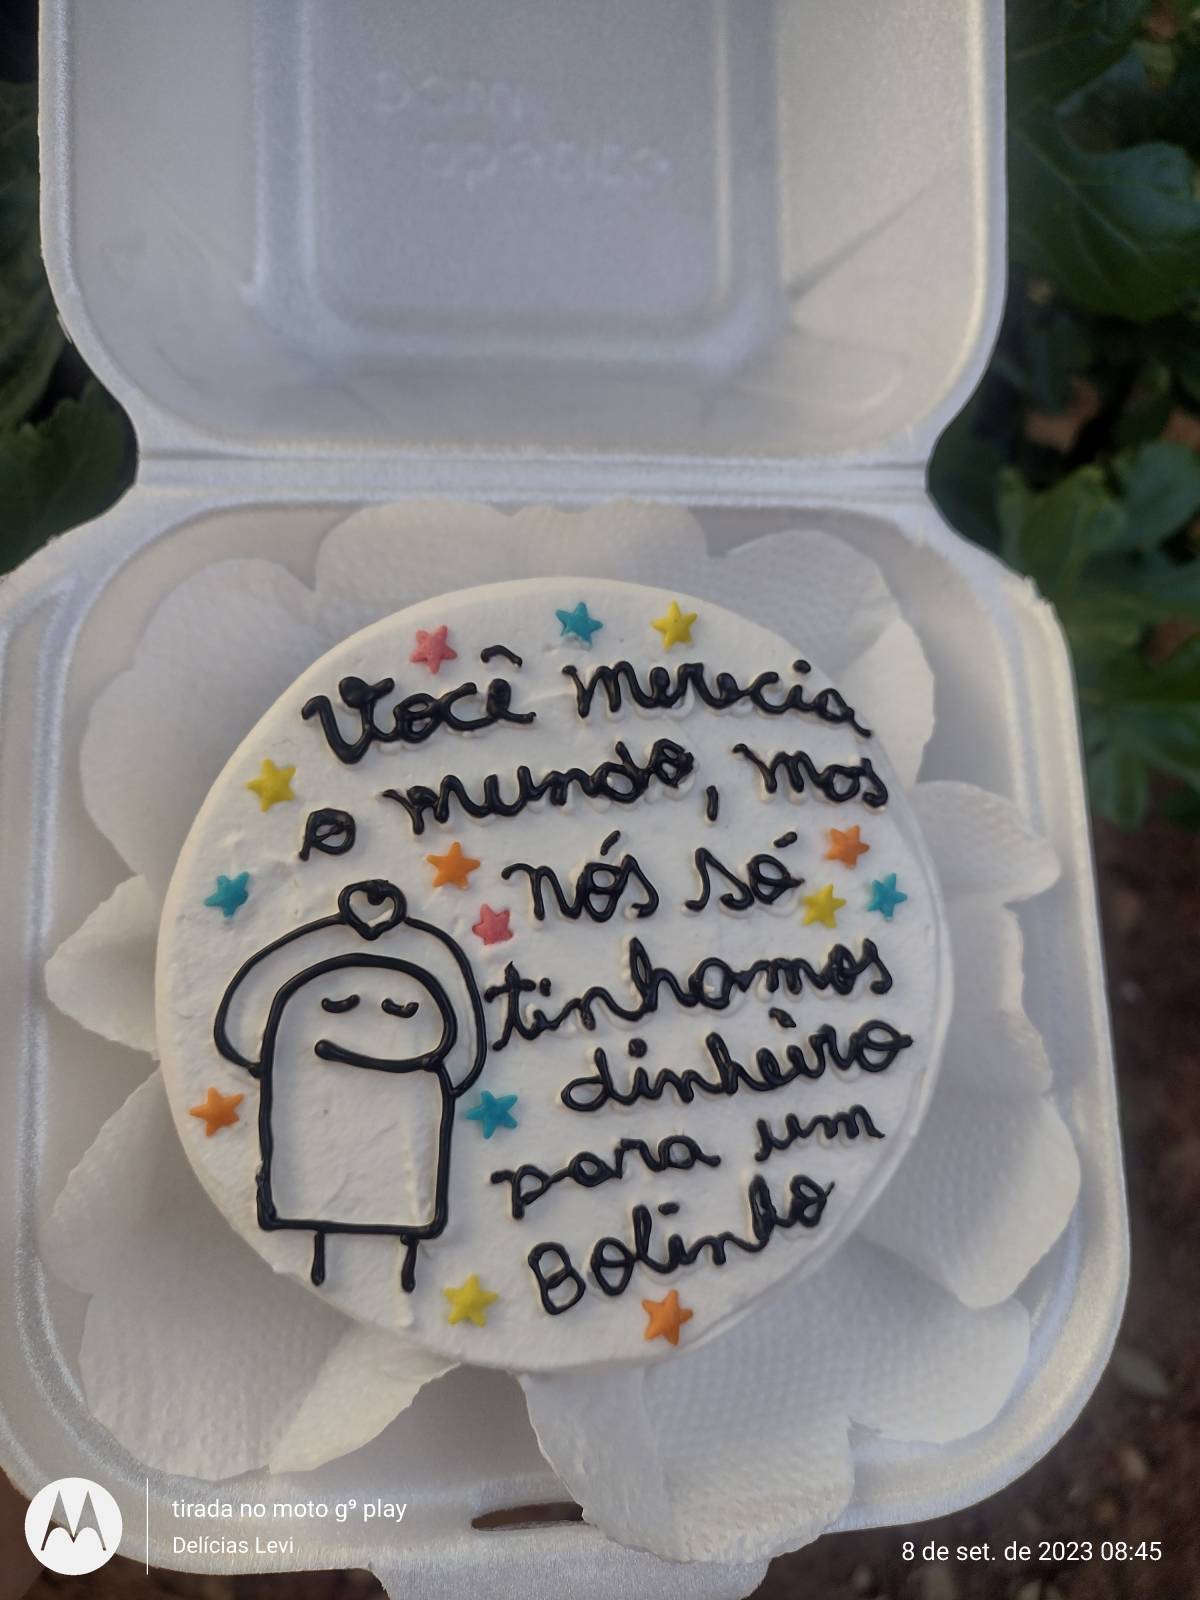 Bom
apetite
Você merecia
o mundo, mas
nós só
tinhamos
dinheiro
para um
Bolinho
tirada no moto g⁹ play
Delícias Levi
8 de set. de 2023 08:45